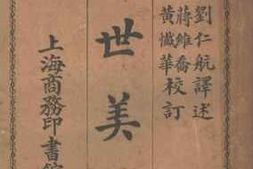 劉仁航譯述
蔣維喬
黃懺華校訂
世美
上海商務印書館